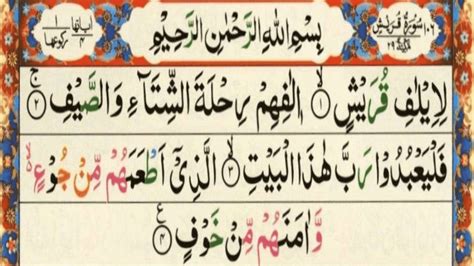 ١٠٦ سُوْرَةُ قُرَيْشٍ ٢٩
بِسْمِ اللّٰهِ الرَّحْمٰنِ الرَّحِيْمِ
اٰيَاتُهَا ٤ رُكُوْعُهَا ١
لِاِيْلٰفِ قُرَيْشٍ ۙ﴿۱﴾ اٖلٰفِهِمْ رِحْلَةَ الشِّتَآءِ وَالصَّيْفِ ۚ﴿۲﴾
فَلْيَعْبُدُوْا رَبَّ هٰذَا الْبَيْتِ ۙ﴿۳﴾ الَّذِيْۤ اَطْعَمَهُمْ مِّنْ جُوْعٍ ۙ۬
وَّاٰمَنَهُمْ مِّنْ خَوْفٍ ﴿۴﴾ ع